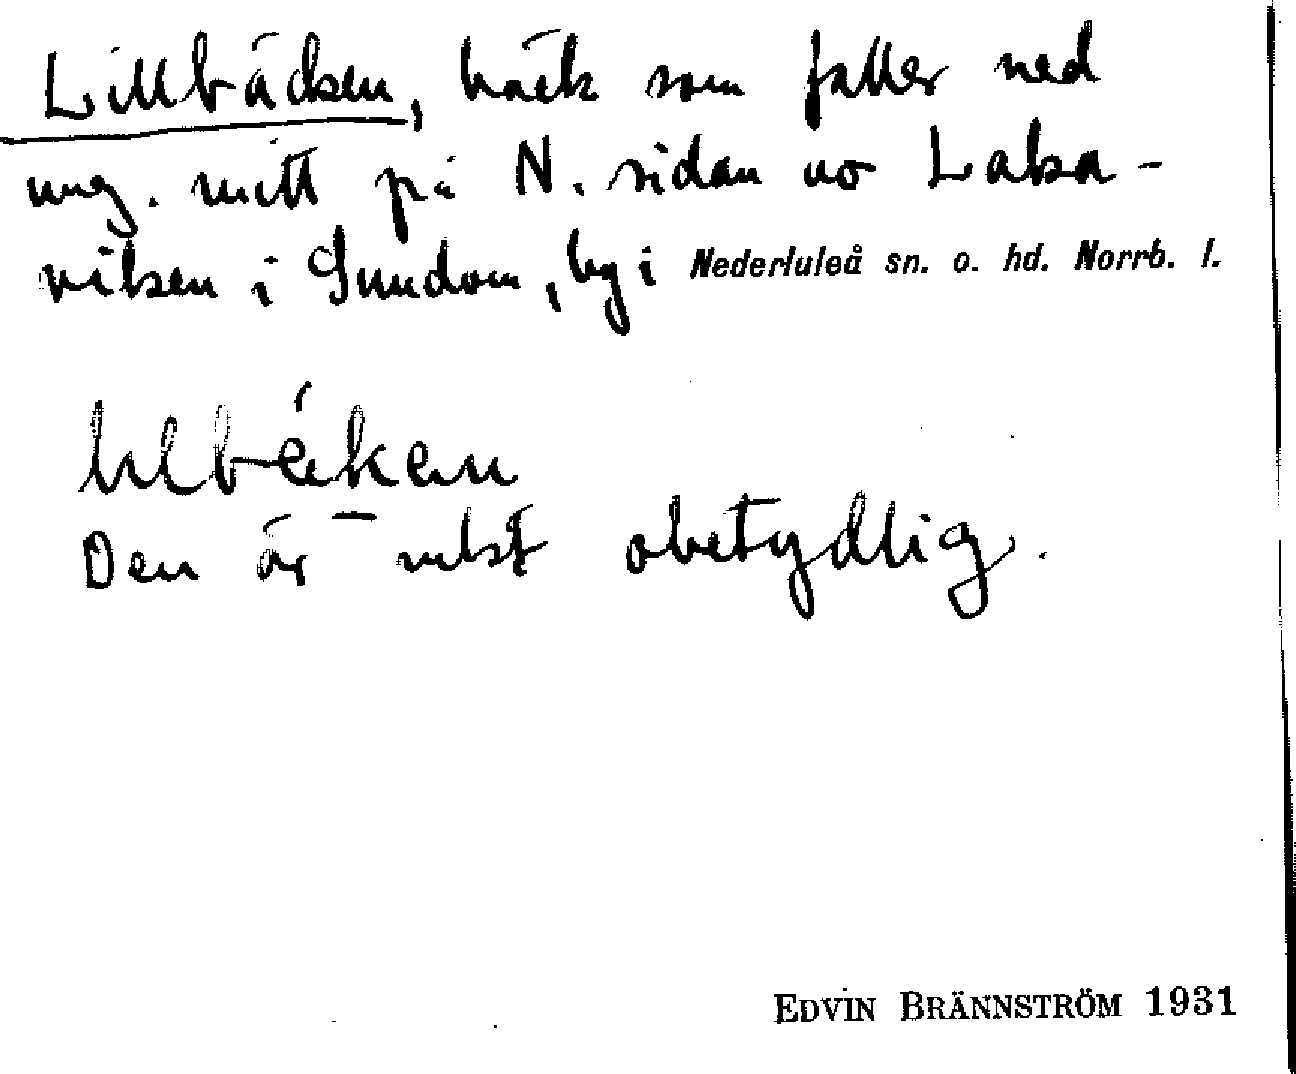 Lillbäcken, bäck som faller ned
ung. mitt på N. sidan av Laksa-
viken i Sundom, by i Nederluleå sn. o. hd. Norrb. l.
Den är mkt obetydlig.
EDVIN BRÄNNSTRÖM 1931